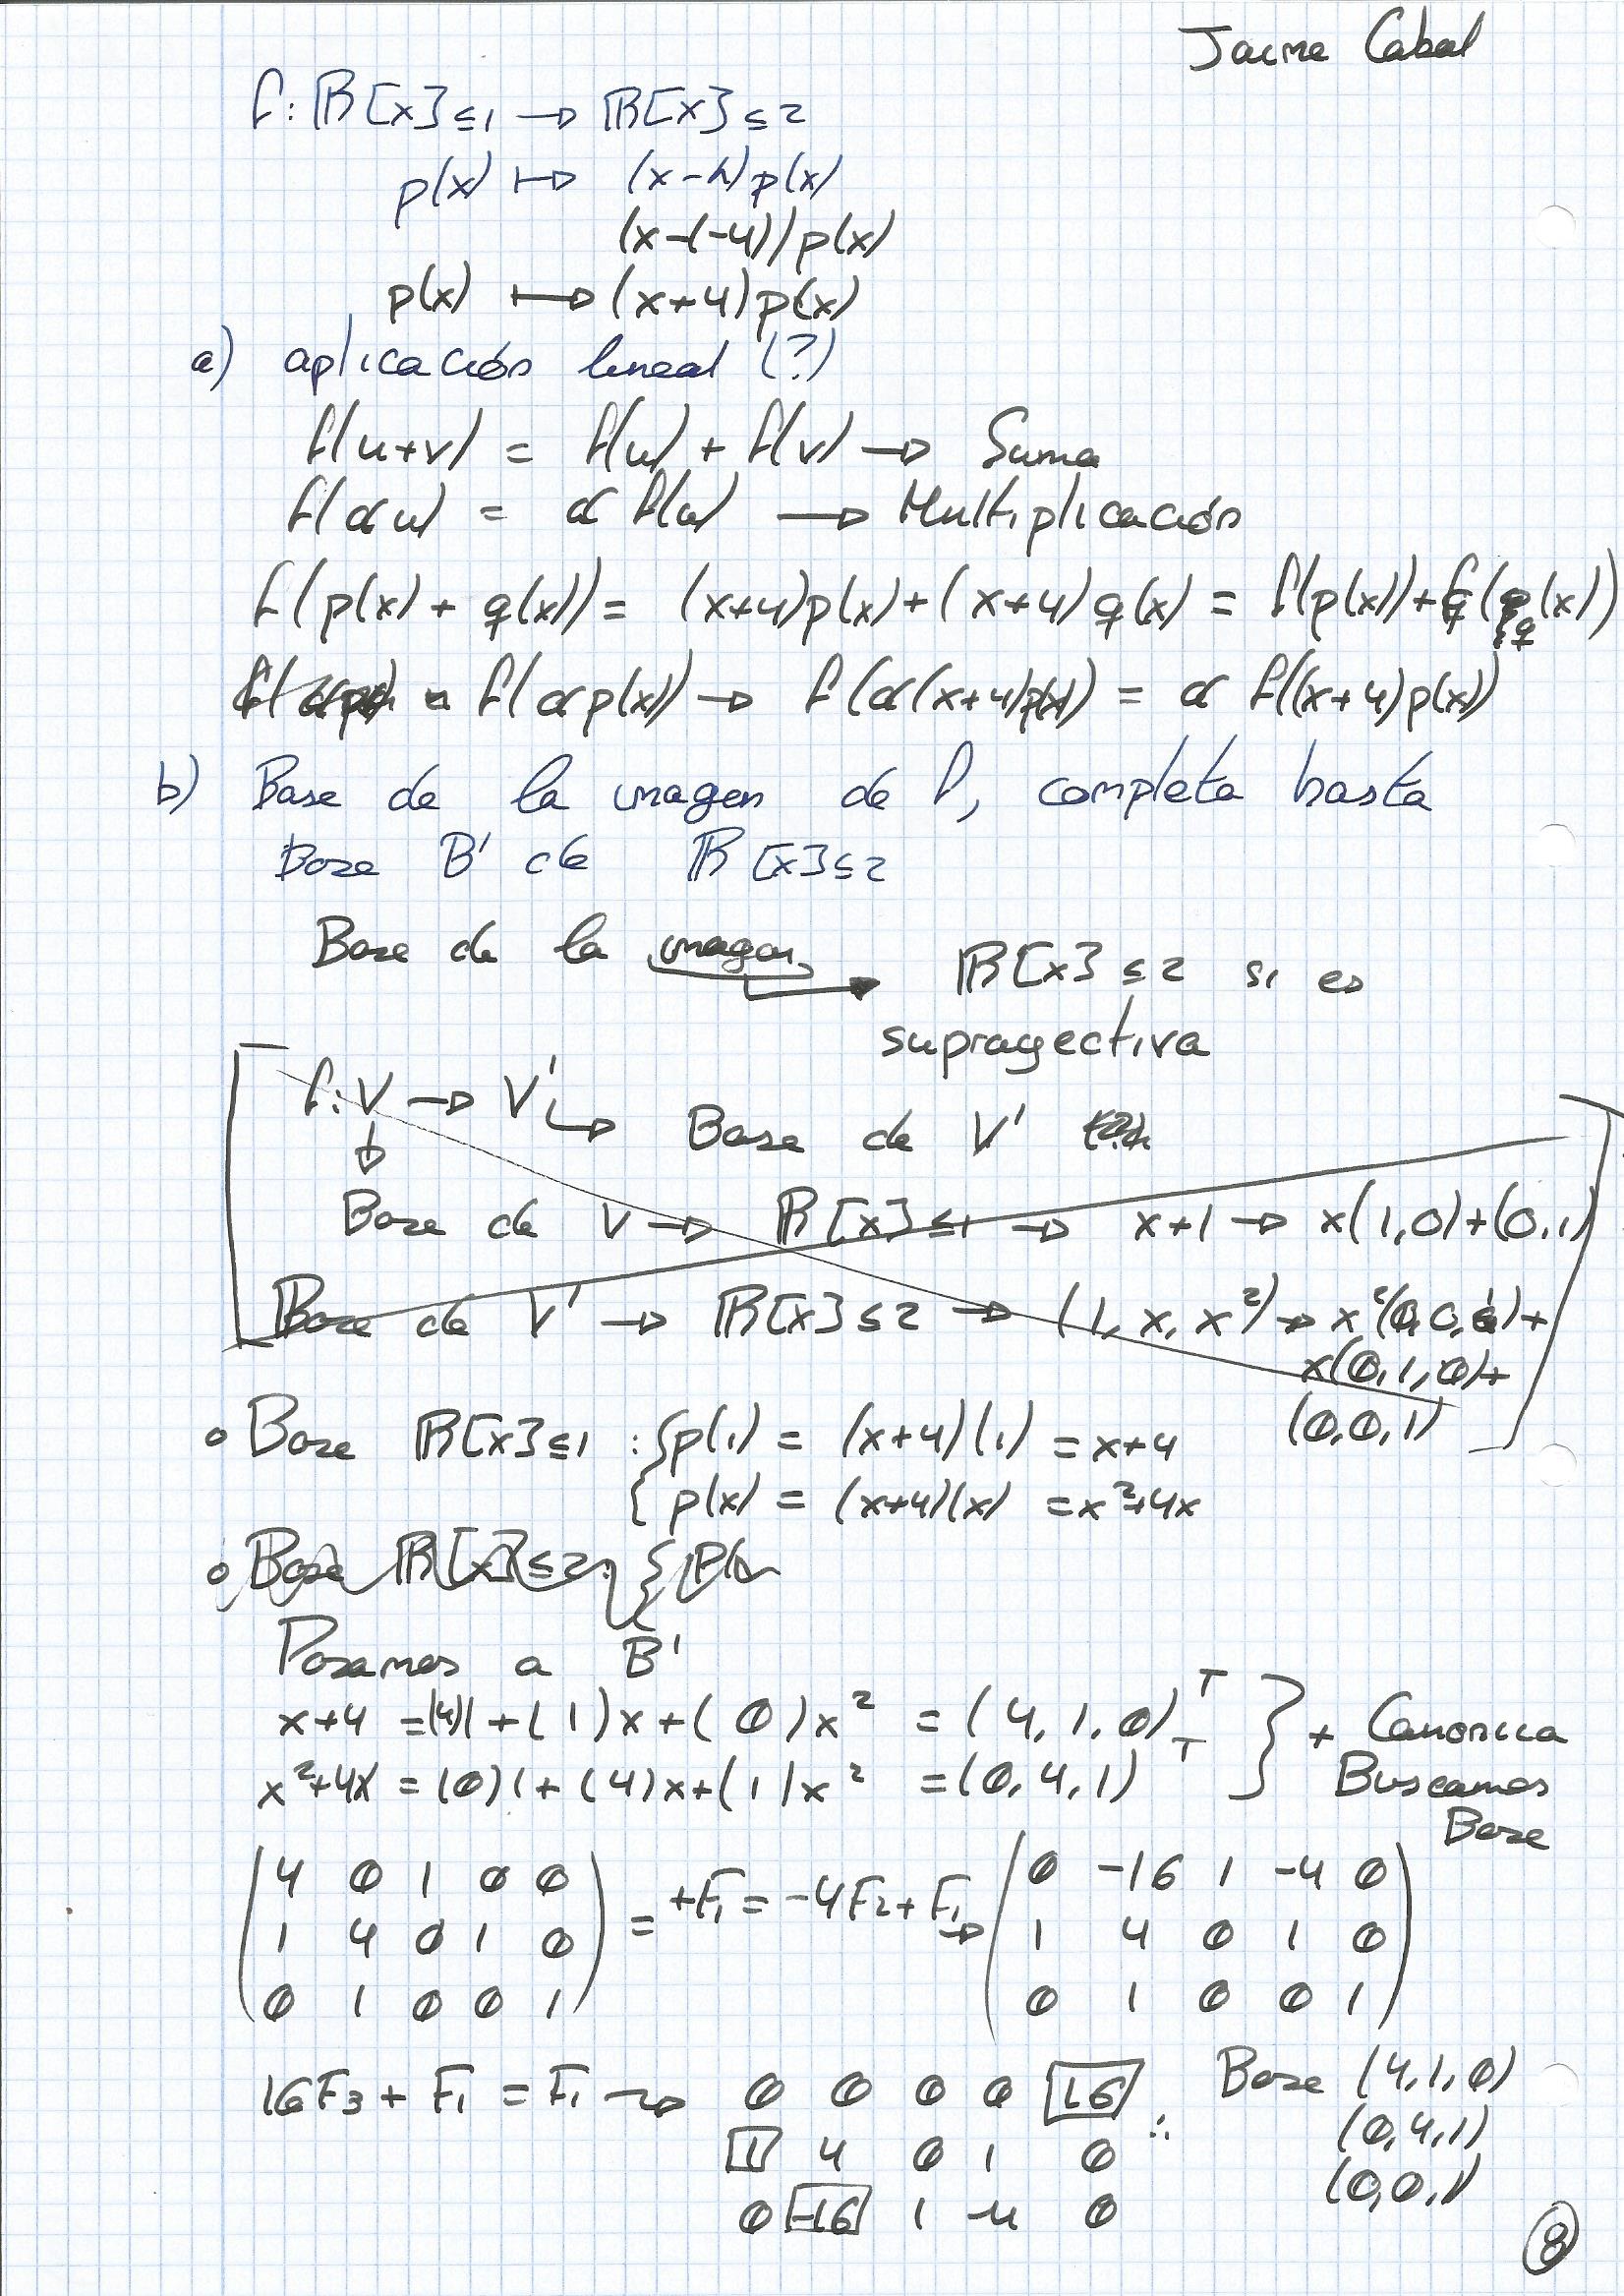 Jaime Cabal
f: ℝ[x]≤1 → ℝ[x]≤2
p(x) ↦ (x-h)p(x)
(x-(-4))p(x)
p(x) ↦ (x+4)p(x)
a) aplicación lineal (?)
f(u+v) = f(u) + f(v) → Suma
f(αu) = α f(u) → Multiplicación
f(p(x) + q(x)) = (x+4)p(x) + (x+4)q(x) = f(p(x)) + f(q(x))
f(αp(x)) → f(α(x+4)p(x)) = α f((x+4)p(x))
b) Base de la imagen de f, completa hasta
Base B' de ℝ[x]≤2
Base de la imagen → ℝ[x]≤2 si es
supragectiva
f: V → V' ↳ Base de V'
↓
Base de V → ℝ[x]≤1 → x+1 → x(1,0)+(0,1)
Base de V' → ℝ[x]≤2 → (1, x, x²) → x²(0,0,1)+
x(0,1,0)+
(0,0,1)
o Base ℝ[x]≤1 : { p(1) = (x+4)(1) = x+4
{ p(x) = (x+4)(x) = x²+4x
o Base ℝ[x]≤2: { p(
Pasamos a B'
x+4 = (4)1+(1)x+(0)x² = (4,1,0)ᵀ
x²+4x = (0)1+(4)x+(1)x² = (0,4,1)ᵀ } + Canonica
Buscamos
Base
4 0 1 0 0
1 4 0 1 0
0 1 0 0 1
= +F₁ = -4F₂+F₁ →
0 -16 1 -4 0
1 4 0 1 0
0 1 0 0 1
16F₃ + F₁ = F₁ → 0 0 0 0 16
1 4 0 1 0
0 -16 1 -4 0
∴ Base (4,1,0)
(0,4,1)
(0,0,1)
8